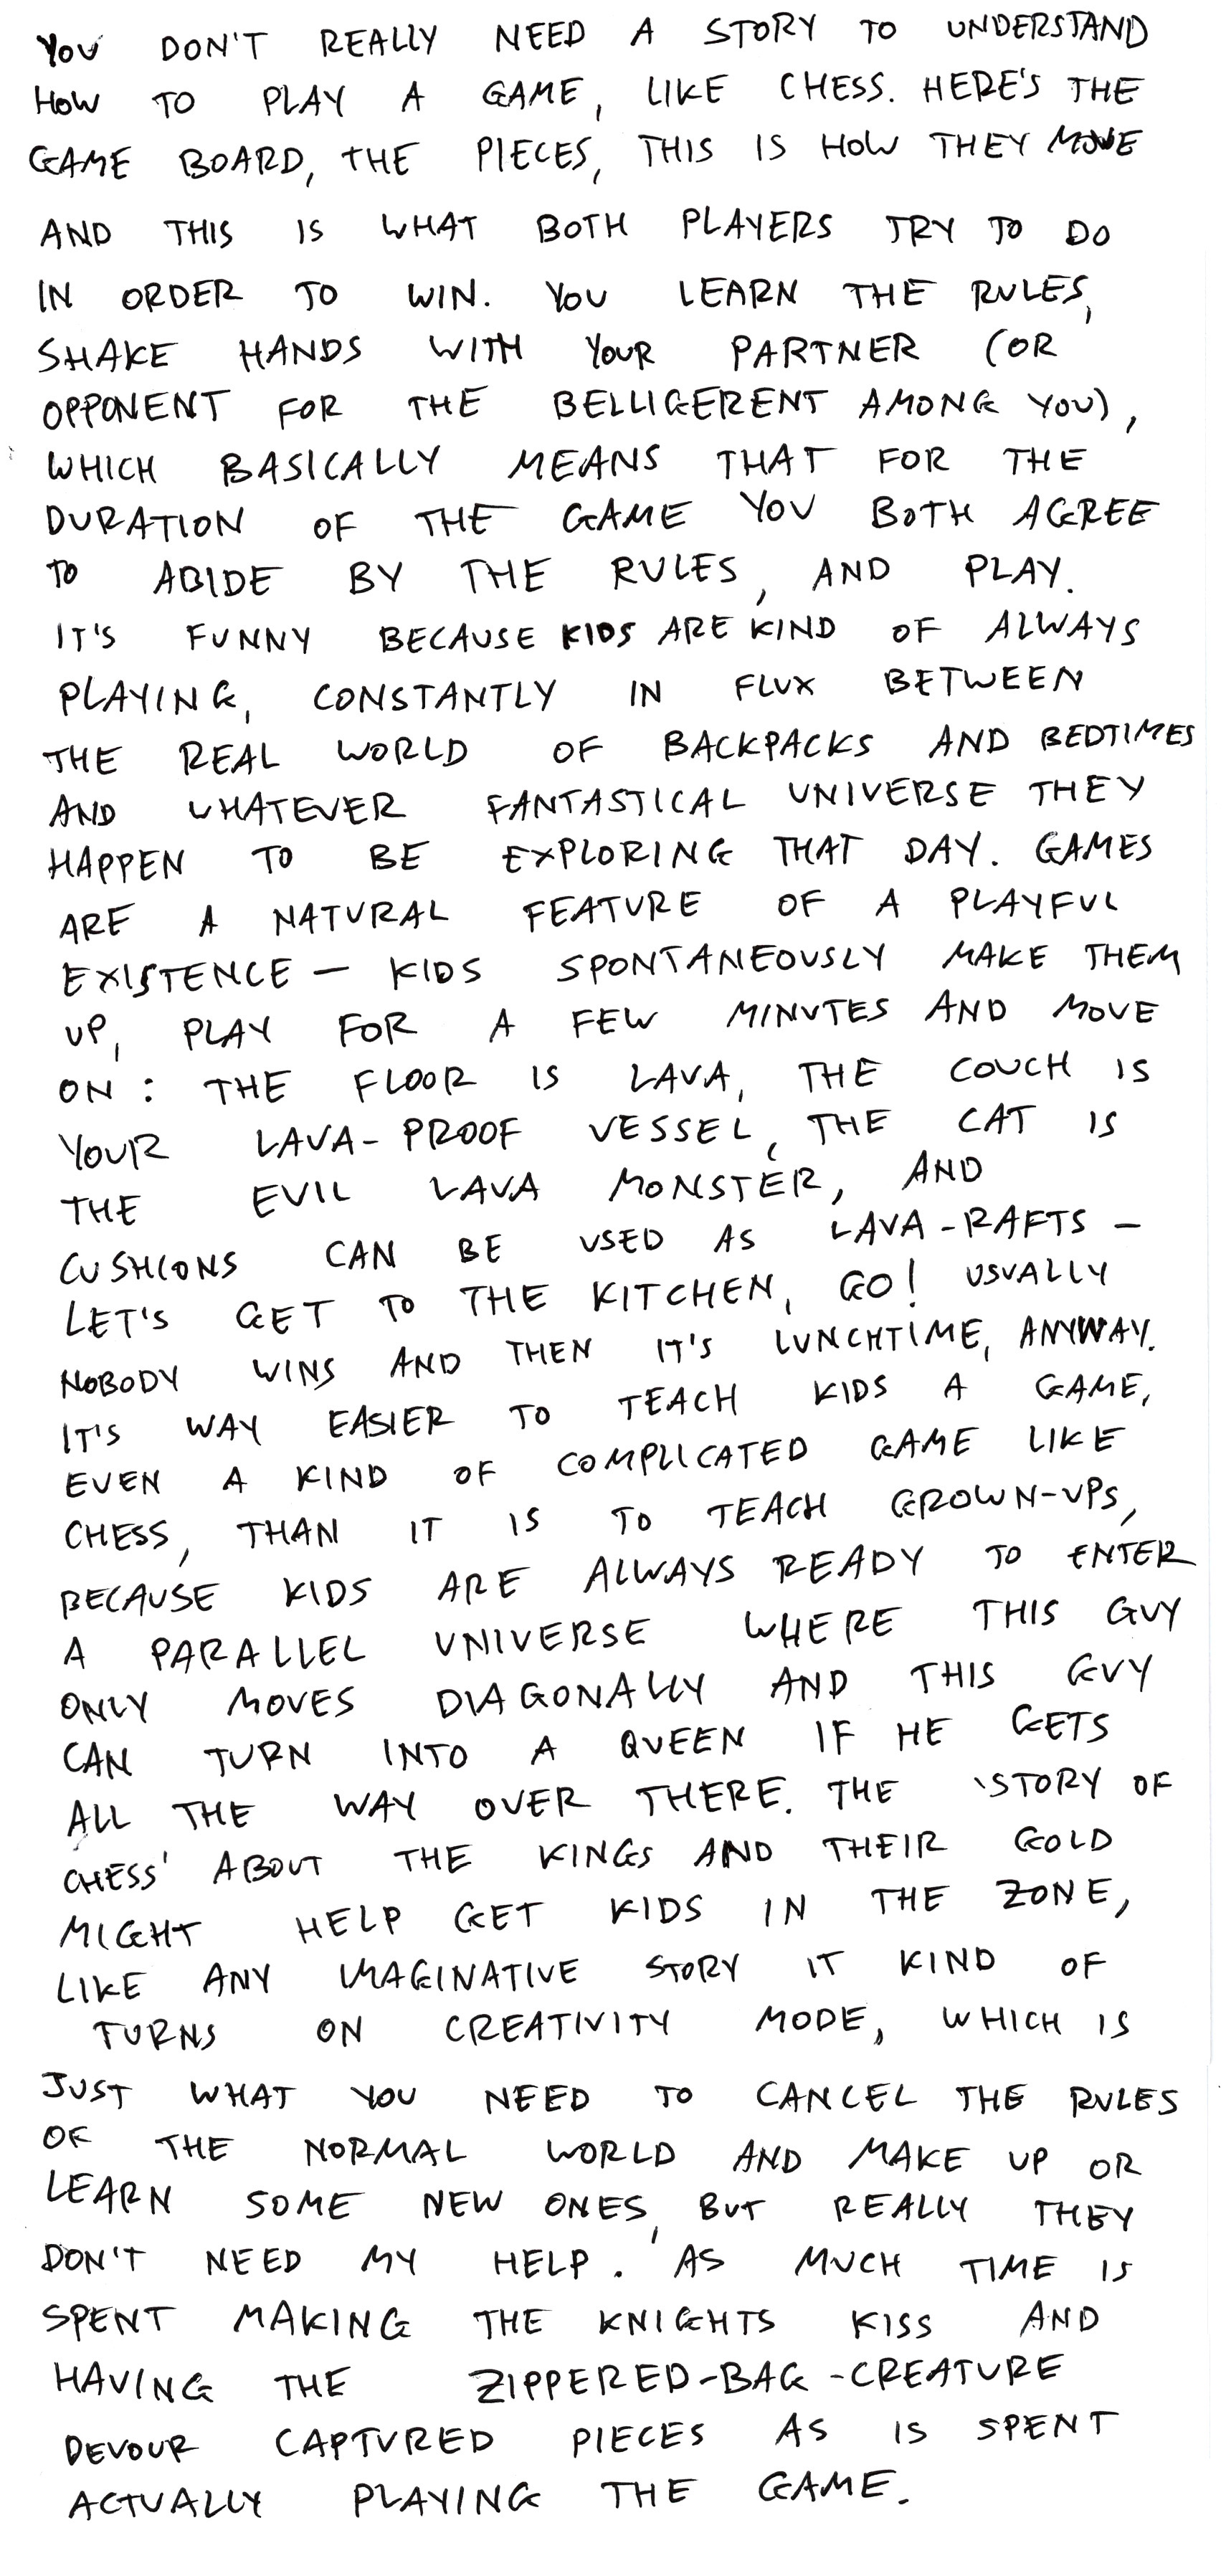 YOU DON'T REALLY NEED A STORY TO UNDERSTAND
HOW TO PLAY A GAME, LIKE CHESS. HERE'S THE
GAME BOARD, THE PIECES, THIS IS HOW THEY MOVE
AND THIS IS WHAT BOTH PLAYERS TRY TO DO
IN ORDER TO WIN. YOU LEARN THE RULES,
SHAKE HANDS WITH YOUR PARTNER (OR
OPPONENT FOR THE BELLIGERENT AMONG YOU),
WHICH BASICALLY MEANS THAT FOR THE
DURATION OF THE GAME YOU BOTH AGREE
TO ABIDE BY THE RULES, AND PLAY.
IT'S FUNNY BECAUSE KIDS ARE KIND OF ALWAYS
PLAYING, CONSTANTLY IN FLUX BETWEEN
THE REAL WORLD OF BACKPACKS AND BEDTIMES
AND WHATEVER FANTASTICAL UNIVERSE THEY
HAPPEN TO BE EXPLORING THAT DAY. GAMES
ARE A NATURAL FEATURE OF A PLAYFUL
EXISTENCE — KIDS SPONTANEOUSLY MAKE THEM
UP, PLAY FOR A FEW MINUTES AND MOVE
ON: THE FLOOR IS LAVA, THE COUCH IS
YOUR LAVA-PROOF VESSEL, THE CAT IS
THE EVIL LAVA MONSTER, AND
CUSHIONS CAN BE USED AS LAVA-RAFTS —
LET'S GET TO THE KITCHEN, GO! USUALLY
NOBODY WINS AND THEN IT'S LUNCHTIME, ANYWAY.
IT'S WAY EASIER TO TEACH KIDS A GAME,
EVEN A KIND OF COMPLICATED GAME LIKE
CHESS, THAN IT IS TO TEACH GROWN-UPS,
BECAUSE KIDS ARE ALWAYS READY TO ENTER
A PARALLEL UNIVERSE WHERE THIS GUY
ONLY MOVES DIAGONALLY AND THIS GUY
CAN TURN INTO A QUEEN IF HE GETS
ALL THE WAY OVER THERE. THE 'STORY OF
CHESS' ABOUT THE KINGS AND THEIR GOLD
MIGHT HELP GET KIDS IN THE ZONE,
LIKE ANY IMAGINATIVE STORY IT KIND OF
TURNS ON CREATIVITY MODE, WHICH IS
JUST WHAT YOU NEED TO CANCEL THE RULES
OF THE NORMAL WORLD AND MAKE UP OR
LEARN SOME NEW ONES, BUT REALLY THEY
DON'T NEED MY HELP. AS MUCH TIME IS
SPENT MAKING THE KNIGHTS KISS AND
HAVING THE ZIPPERED-BAG-CREATURE
DEVOUR CAPTURED PIECES AS IS SPENT
ACTUALLY PLAYING THE GAME.